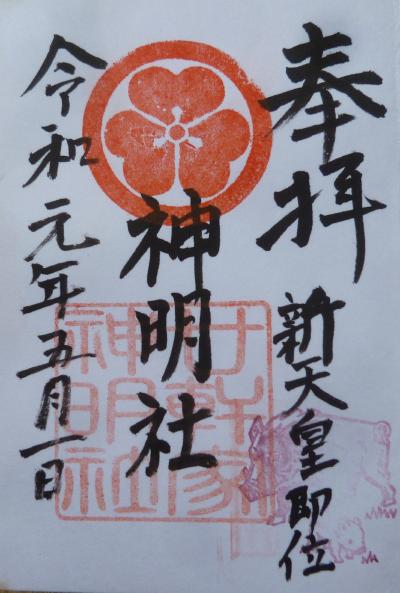 奉拝
新天皇即位
神明社
千軒家
神明社
令和元年五月一日